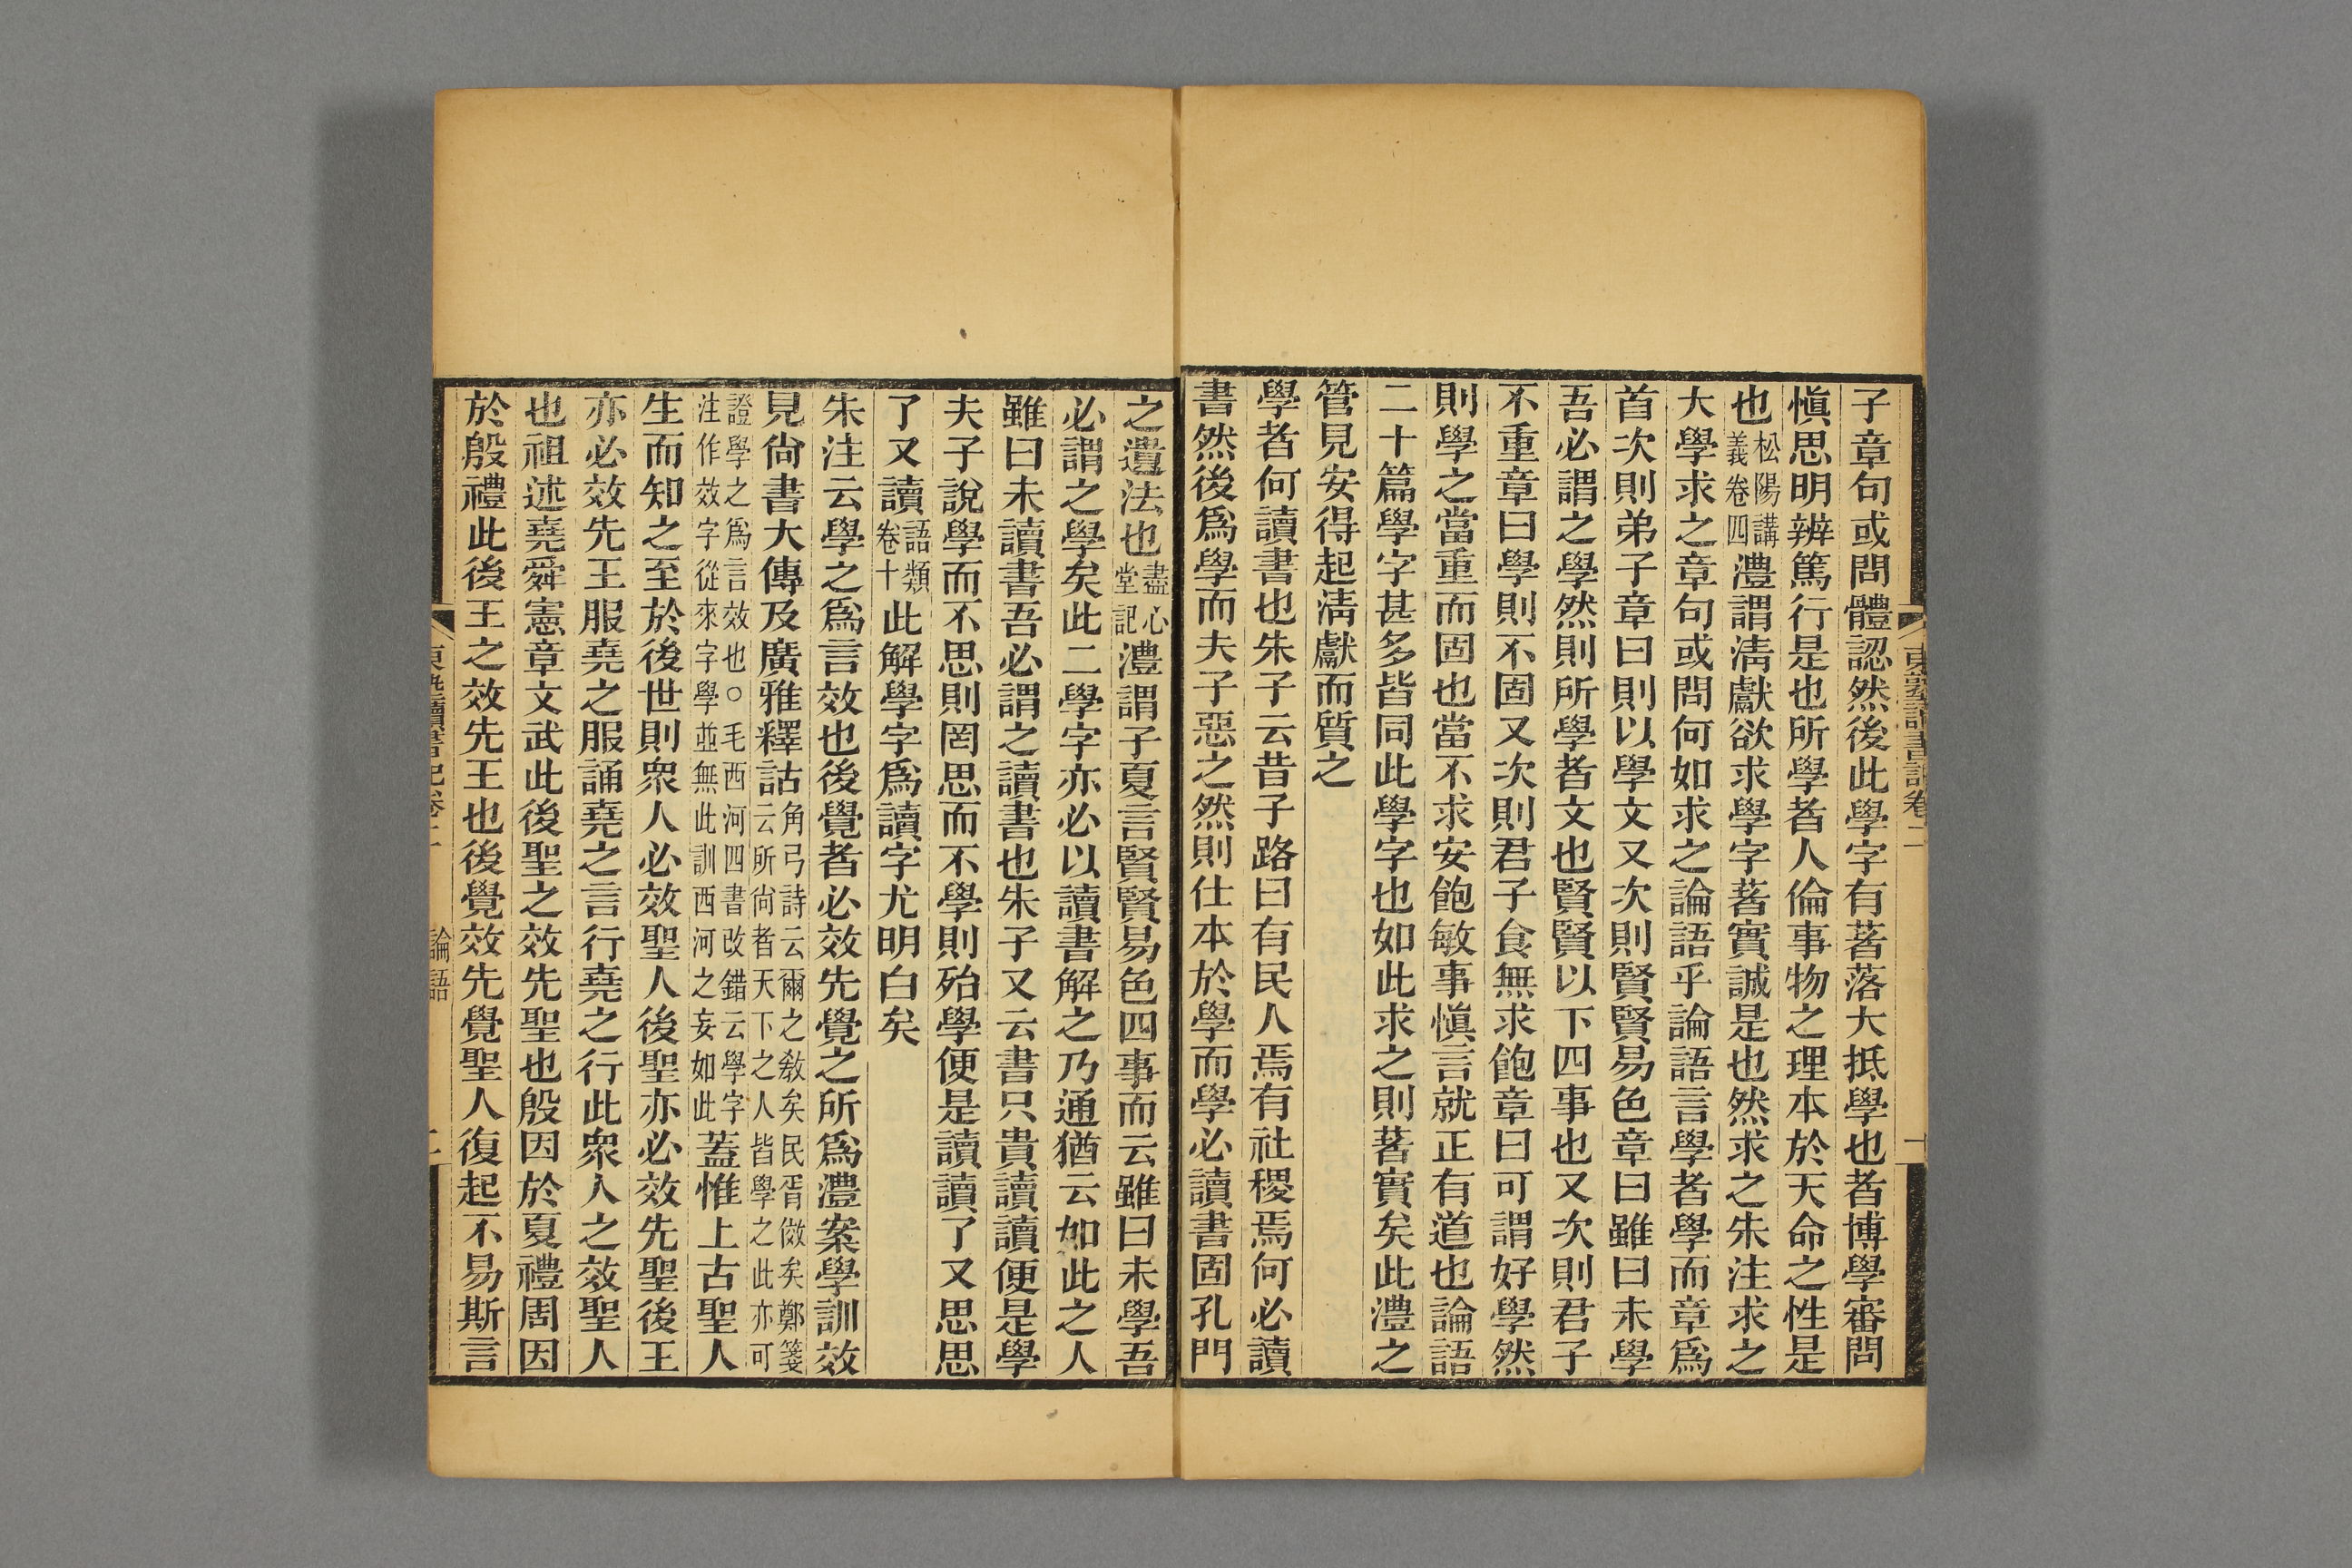 子章句或問體認然後此學字有著落大抵學也者博學審問
愼思明辨篤行是也所學者人倫事物之理本於天命之性是
也松陽講義卷四澧謂淸獻欲求學字著實誠是也然求之朱注求之
大學求之章句或問何如求之論語乎論語言學者學而章爲
首次則弟子章曰則以學文又次則賢賢易色章曰雖曰未學
吾必謂之學然則所學者文也賢賢以下四事也又次則君子
不重章曰學則不固又次則君子食無求飽章曰可謂好學然
則學之當重而固也當不求安飽敏事愼言就正有道也論語
二十篇學字甚多皆同此學字也如此求之則著實矣此澧之
管見安得起淸獻而質之
學者何讀書也朱子云昔子路曰有民人焉有社稷焉何必讀
書然後爲學而夫子惡之然則仕本於學而學必讀書固孔門
之遺法也盡心堂記澧謂子夏言賢賢易色四事而云雖曰未學吾
必謂之學矣此二學字亦必以讀書解之乃通猶云如此之人
雖曰未讀書吾必謂之讀書也朱子又云書只貴讀讀便是學
夫子說學而不思則罔思而不學則殆學便是讀讀了又思思
了又讀語類卷十此解學字爲讀字尤明白矣
朱注云學之爲言效也後覺者必效先覺之所爲澧案學訓效
見尙書大傳及廣雅釋詁角弓詩云爾之敎矣民胥傚矣鄭箋云所尙者天下之人皆學之此亦可
證學之爲言效也○毛西河四書改錯云學字注作效字從來字學並無此訓西河之妄如此蓋惟上古聖人
生而知之至於後世則衆人必效聖人後聖亦必效先聖後王
亦必效先王服堯之服誦堯之言行堯之行此衆人之效聖人
也祖述堯舜憲章文武此後聖之效先聖也殷因於夏禮周因
於殷禮此後王之效先王也後覺效先覺聖人復起不易斯言
論語
二